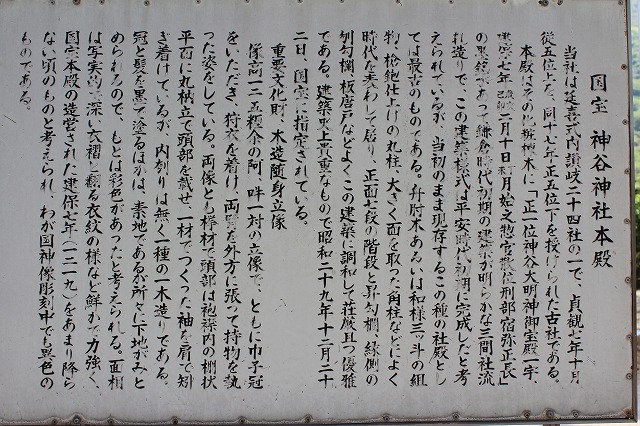 国宝 神谷神社本殿
当社は延喜式内讃岐二十四社の一で、貞観七年十月
従五位上を、同十七年正五位下を授けられた古社である。
本殿はその化粧棟木に「正一位神谷大明神御宝殿一宇、
建保七年歳次二月十日
月始之惣官散位刑部宿弥正長」
の墨書があって鎌倉時代初期の建築が明らかな三間社流
れ造りで、この建築様式は平安時代初期に完成したと考
えられているが、当初のまま現存するこの種の社殿とし
ては最古のものである。舟肘木あるいは和様三ッ斗の組
物、槍鉋仕上げの丸柱、大きく面を取った角柱などによく
時代を表わして居り、正面七段の階段と昇勾欄、縁側の
刎勾欄、板唐戸などよくこの建築に調和して荘厳且つ優雅
である。建築史上貴重なもので昭和二十九年十二月二十
二日、国宝に指定されている。
重要文化財、木造随身立像
像高一二五糎余の阿、吽一対の立像で、ともに巾子冠
をいただき、狩衣を着け、両臂を外方に張って持物を執
った姿をしている。両像とも欅材で頭部は袍襟内の棚状
平面に丸枘立て頭部を載せ、一材でつくった袖を肩で矧
ぎ着けているが、内刳りは無く一種の一木造りである。
冠と髪を黒で塗るほかは、素地であるが所々に下地がみと
められるので、もとは彩色があったと考えられる。面相
は写実的で深い衣褶と翻る衣紋の様など鮮かで力強く、
国宝本殿の造営された建保七年(一二一九)をあまり降ら
ない頃のものと考えられ、わが国神像彫刻中でも異色の
ものである。